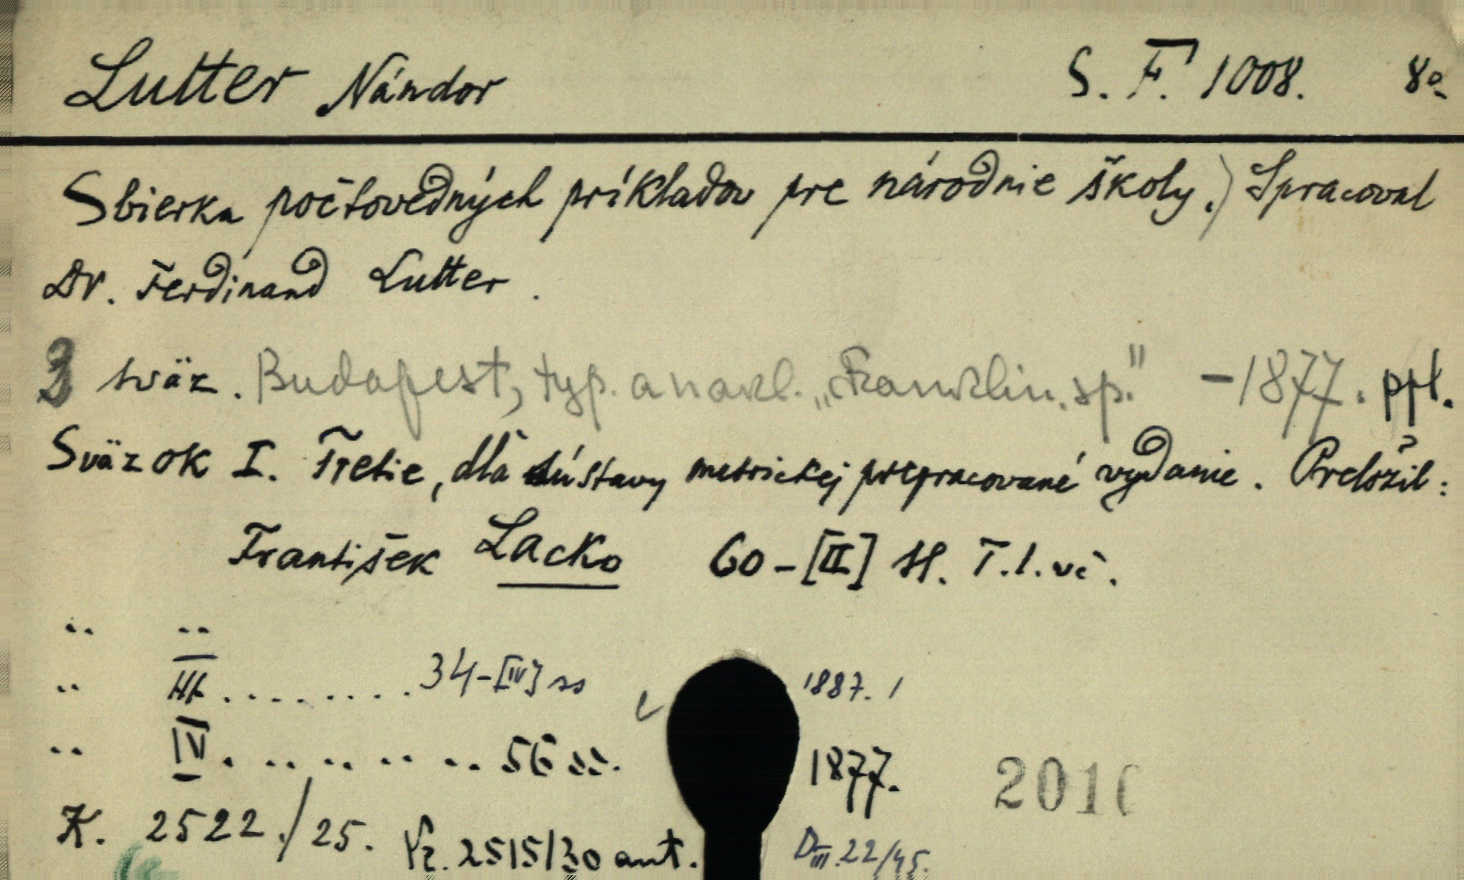 Lutter Nándor S. F. 1008. 8º
Sbierka počtovedných príkladov pre národnie školy.) Spracoval
Dr. Ferdinand Lutter.
3 sväz. Budapest, typ. a nakl. „Franklin. sp." - 1877. ppl.
Sväzok I. Tretie, dľa sústavy metrickej prepracované vydanie. Preložil:
František Lacko 60-[II] st. T. l. vč.
.. ..
.. III ........ 34-[IV] ss 1887. 1
.. IV ........ 56 ss. 1877.
2016
K. 2522./25. Vz. 2515/30 ant. D III. 22/45.